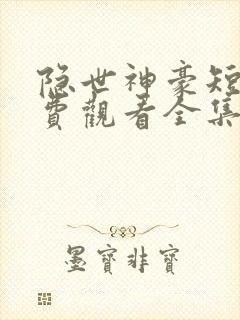 隐世神豪短
費觀看全集
墨寶非寶